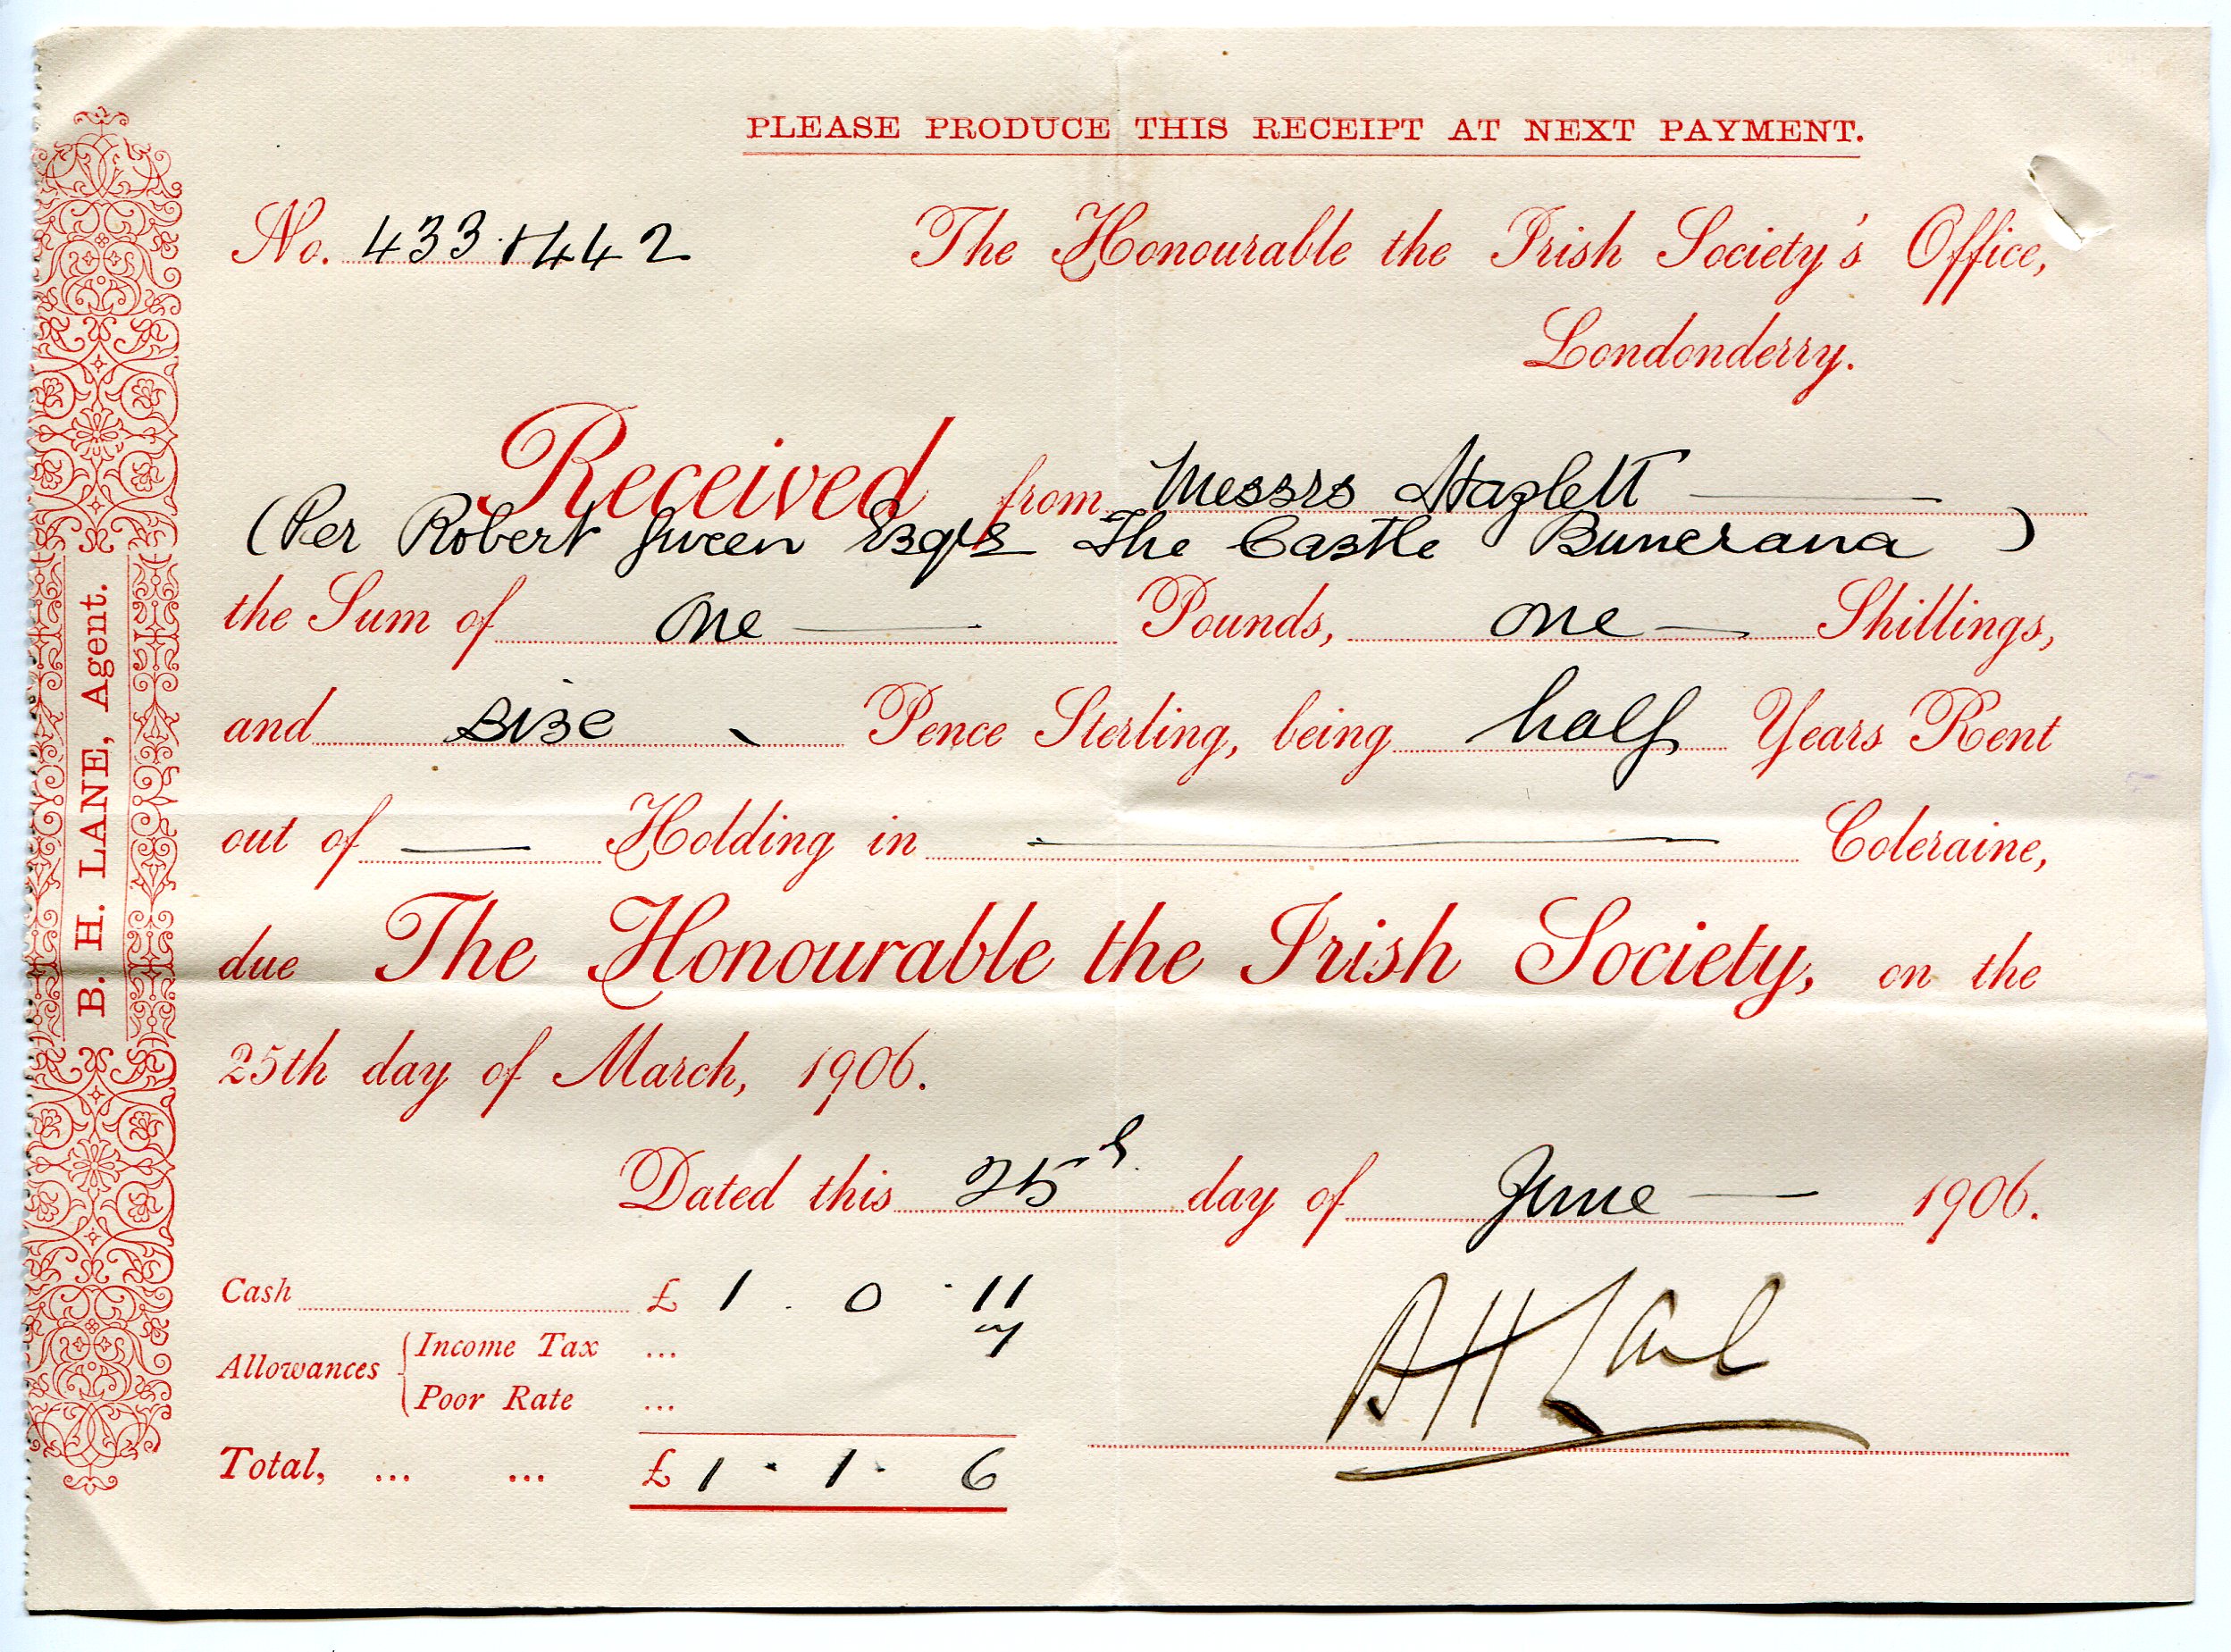 PLEASE PRODUCE THIS RECEIPT AT NEXT PAYMENT.
No. 433 + 442
The Honourable the Irish Society's Office,
Londonderry.
Received from Messrs Hazlett
(Per Robert Esqre The Castle Buncrana)
the Sum of one Pounds, one Shillings,
and sixe Pence Sterling, being half Years Rent
out of — Holding in — Coleraine,
due The Honourable the Irish Society, on the
25th day of March, 1906.
Dated this 25th day of June — 1906.
Cash £ 1 . 0 . 11
Allowances { Income Tax ... 7
Poor Rate ...
Total, ... ... £ 1 . 1 . 6
B H Lane
B. H. LANE, Agent.